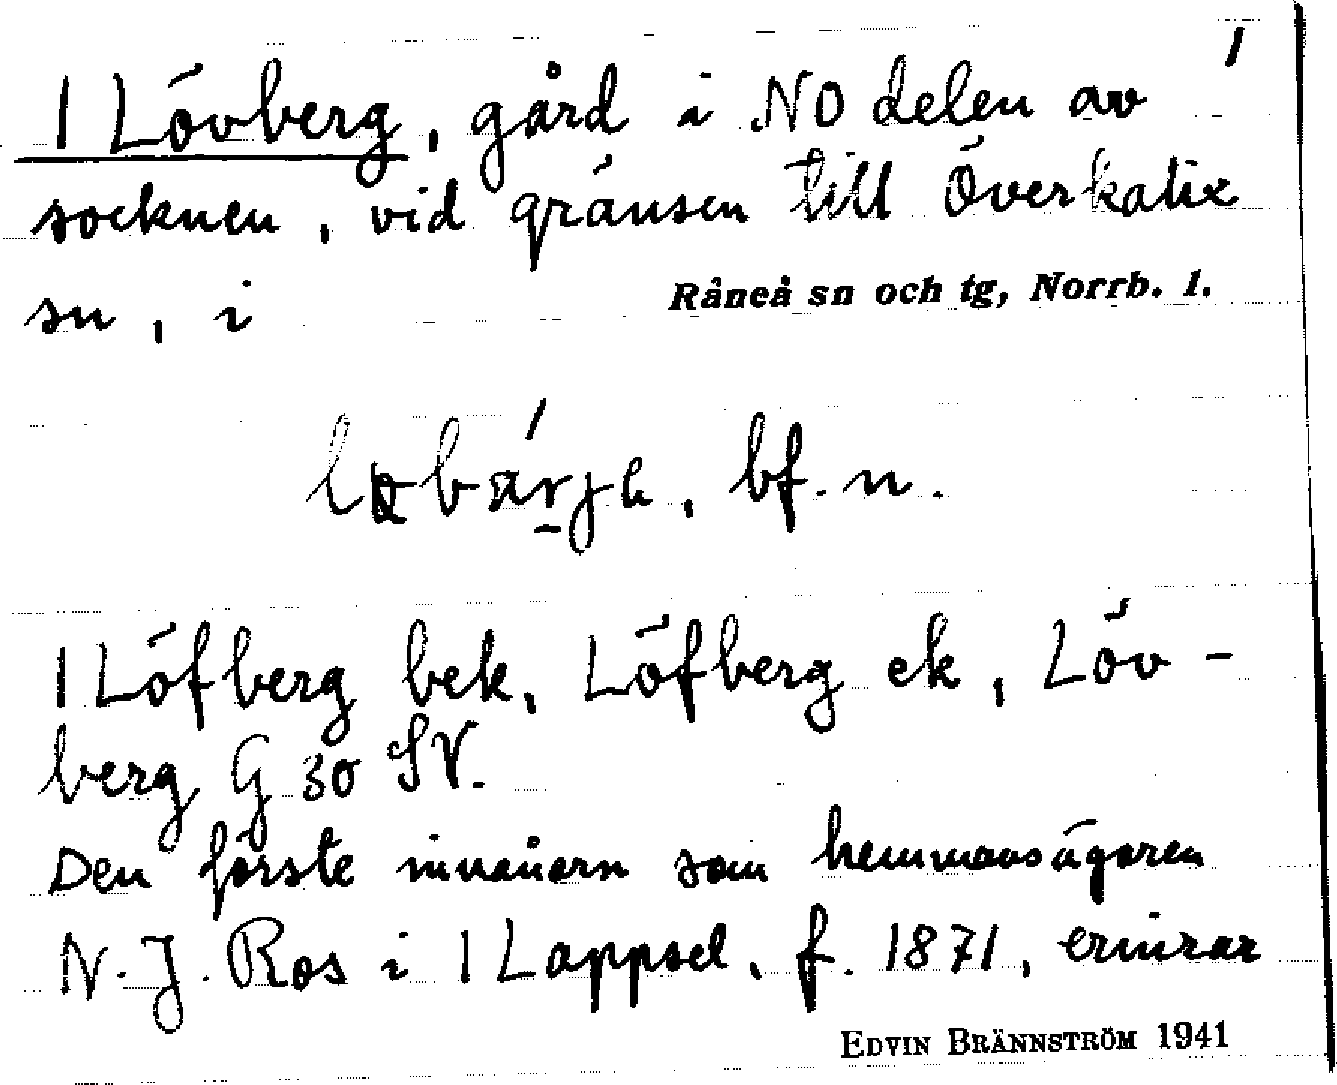 1
1 Lövberg, gård i NO delen av
socknen, vid gränsen till Överkalix
sn, i
Råneå sn och tg, Norrb. l.
bf. n.
1 Löfberg bek, Löfberg ek, Löv-
berg G 30 SV.
Den förste invånarn som hemmansägaren
N. J. Ros i 1 Lappsel, f. 1871, erinrar
EDVIN BRÄNNSTRÖM 1941